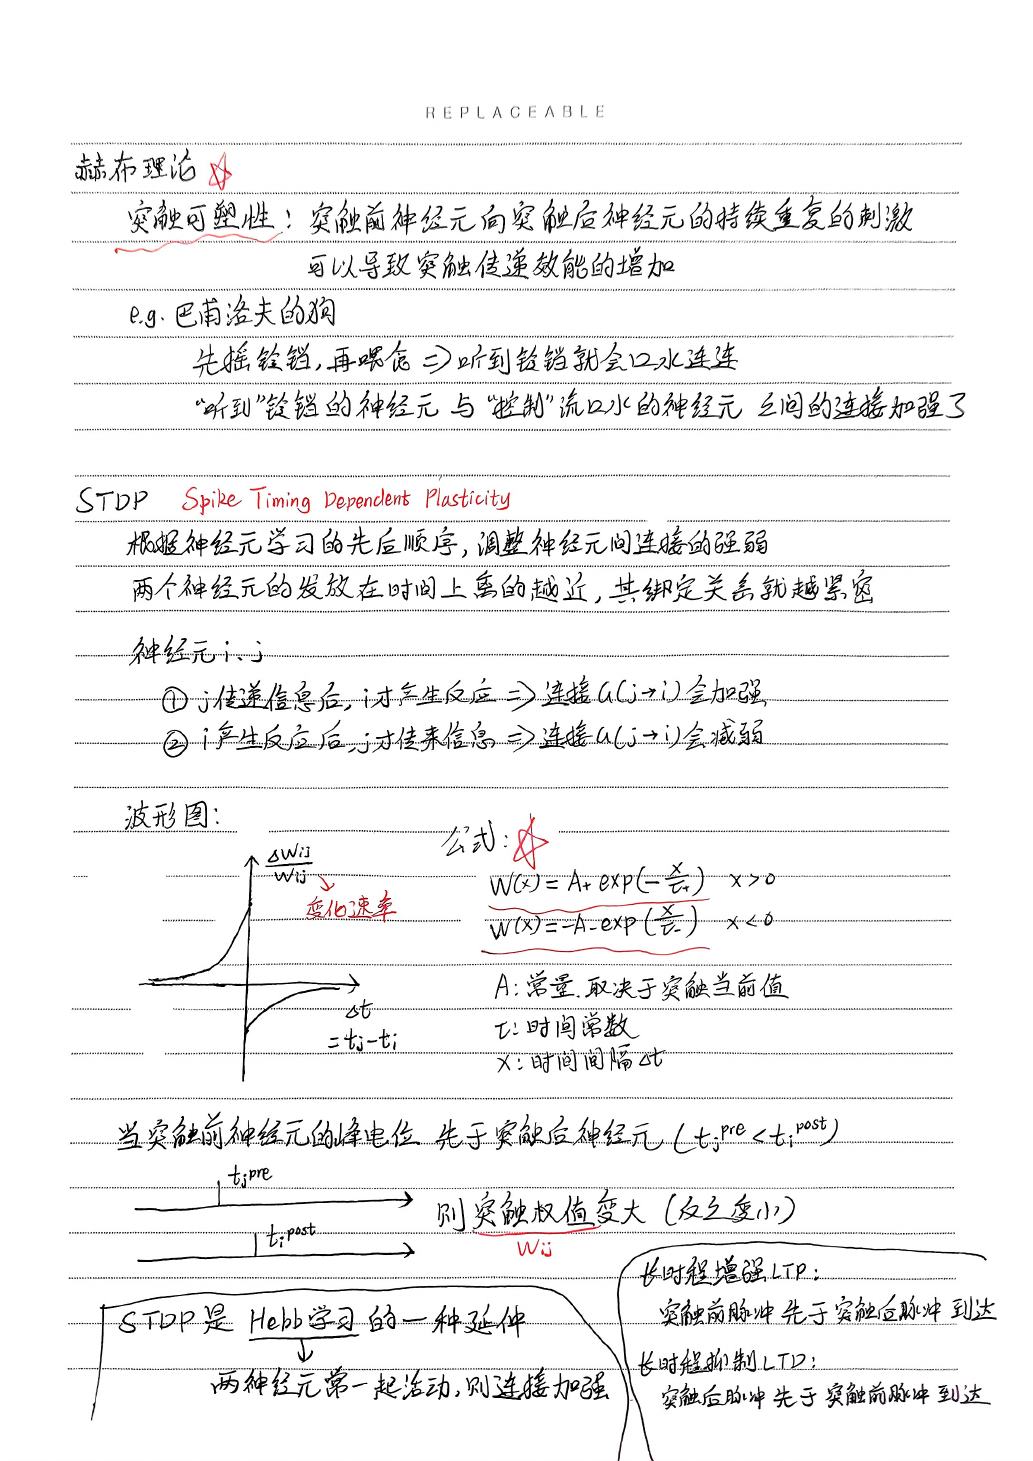 REPLACEABLE
赫布理论
突触可塑性：突触前神经元向突触后神经元的持续重复的刺激
可以导致突触传递效能的增加
e.g. 巴甫洛夫的狗
先摇铃铛，再喂食 => 听到铃铛就会口水连连
“听到”铃铛的神经元 与 “控制”流口水的神经元 之间的连接加强了
STDP Spike Timing Dependent Plasticity
根据神经元学习的先后顺序，调整神经元间连接的强弱
两个神经元的发放在时间上离的越近，其绑定关系就越紧密
神经元 i、j
① j传递信息后，i才产生反应 => 连接a(j→i)会加强
② i产生反应后，j才传来信息 => 连接a(j→i)会减弱
波形图：
ΔWij
Wij
变化速率
Δt
=tj-ti
公式：
W(x) = A+ exp(-x/τ+) x>0
W(x) = -A- exp(x/τ-) x<0
A：常量，取决于突触当前值
τ：时间常数
x：时间间隔Δt
当突触前神经元的峰电位 先于突触后神经元 (tj^pre < ti^post)
tj^pre
ti^post
则突触权值变大（反之变小）
Wij
STDP是 Hebb学习 的一种延伸
↓
两神经元常一起活动，则连接加强
长时程增强LTP：
突触前脉冲 先于 突触后脉冲 到达
长时程抑制LTD：
突触后脉冲 先于 突触前脉冲 到达